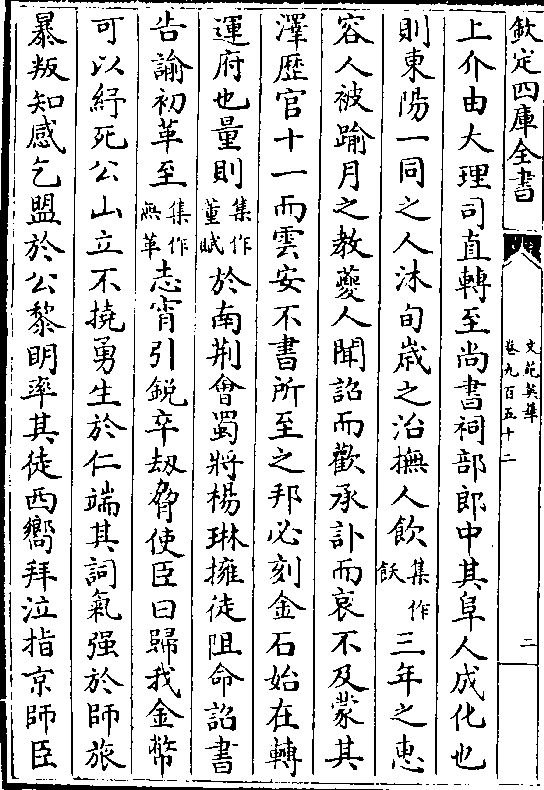 欽定四庫全書
文苑英華
卷九百五十二
二
上介由大理司直轉至尚書祠部郎中其阜人成化也
則東陽一同之人沐旬歳之治撫人飲集作飫三年之惠
容人被踰月之教夔人聞詔而歡承訃而哀不及蒙其
澤歴官十一而雲安不書所至之邦必刻金石始在轉
運府也量則集作董賦於南荆會蜀將楊琳擁徒阻命詔書
告諭初革至集作無革志宵引鋭卒刼脅使臣曰歸我金幣
可以紓死公山立不撓勇生於仁端其詞氣强於師旅
暴叛知感乞盟於公黎明率其徒西嚮拜泣指京師臣